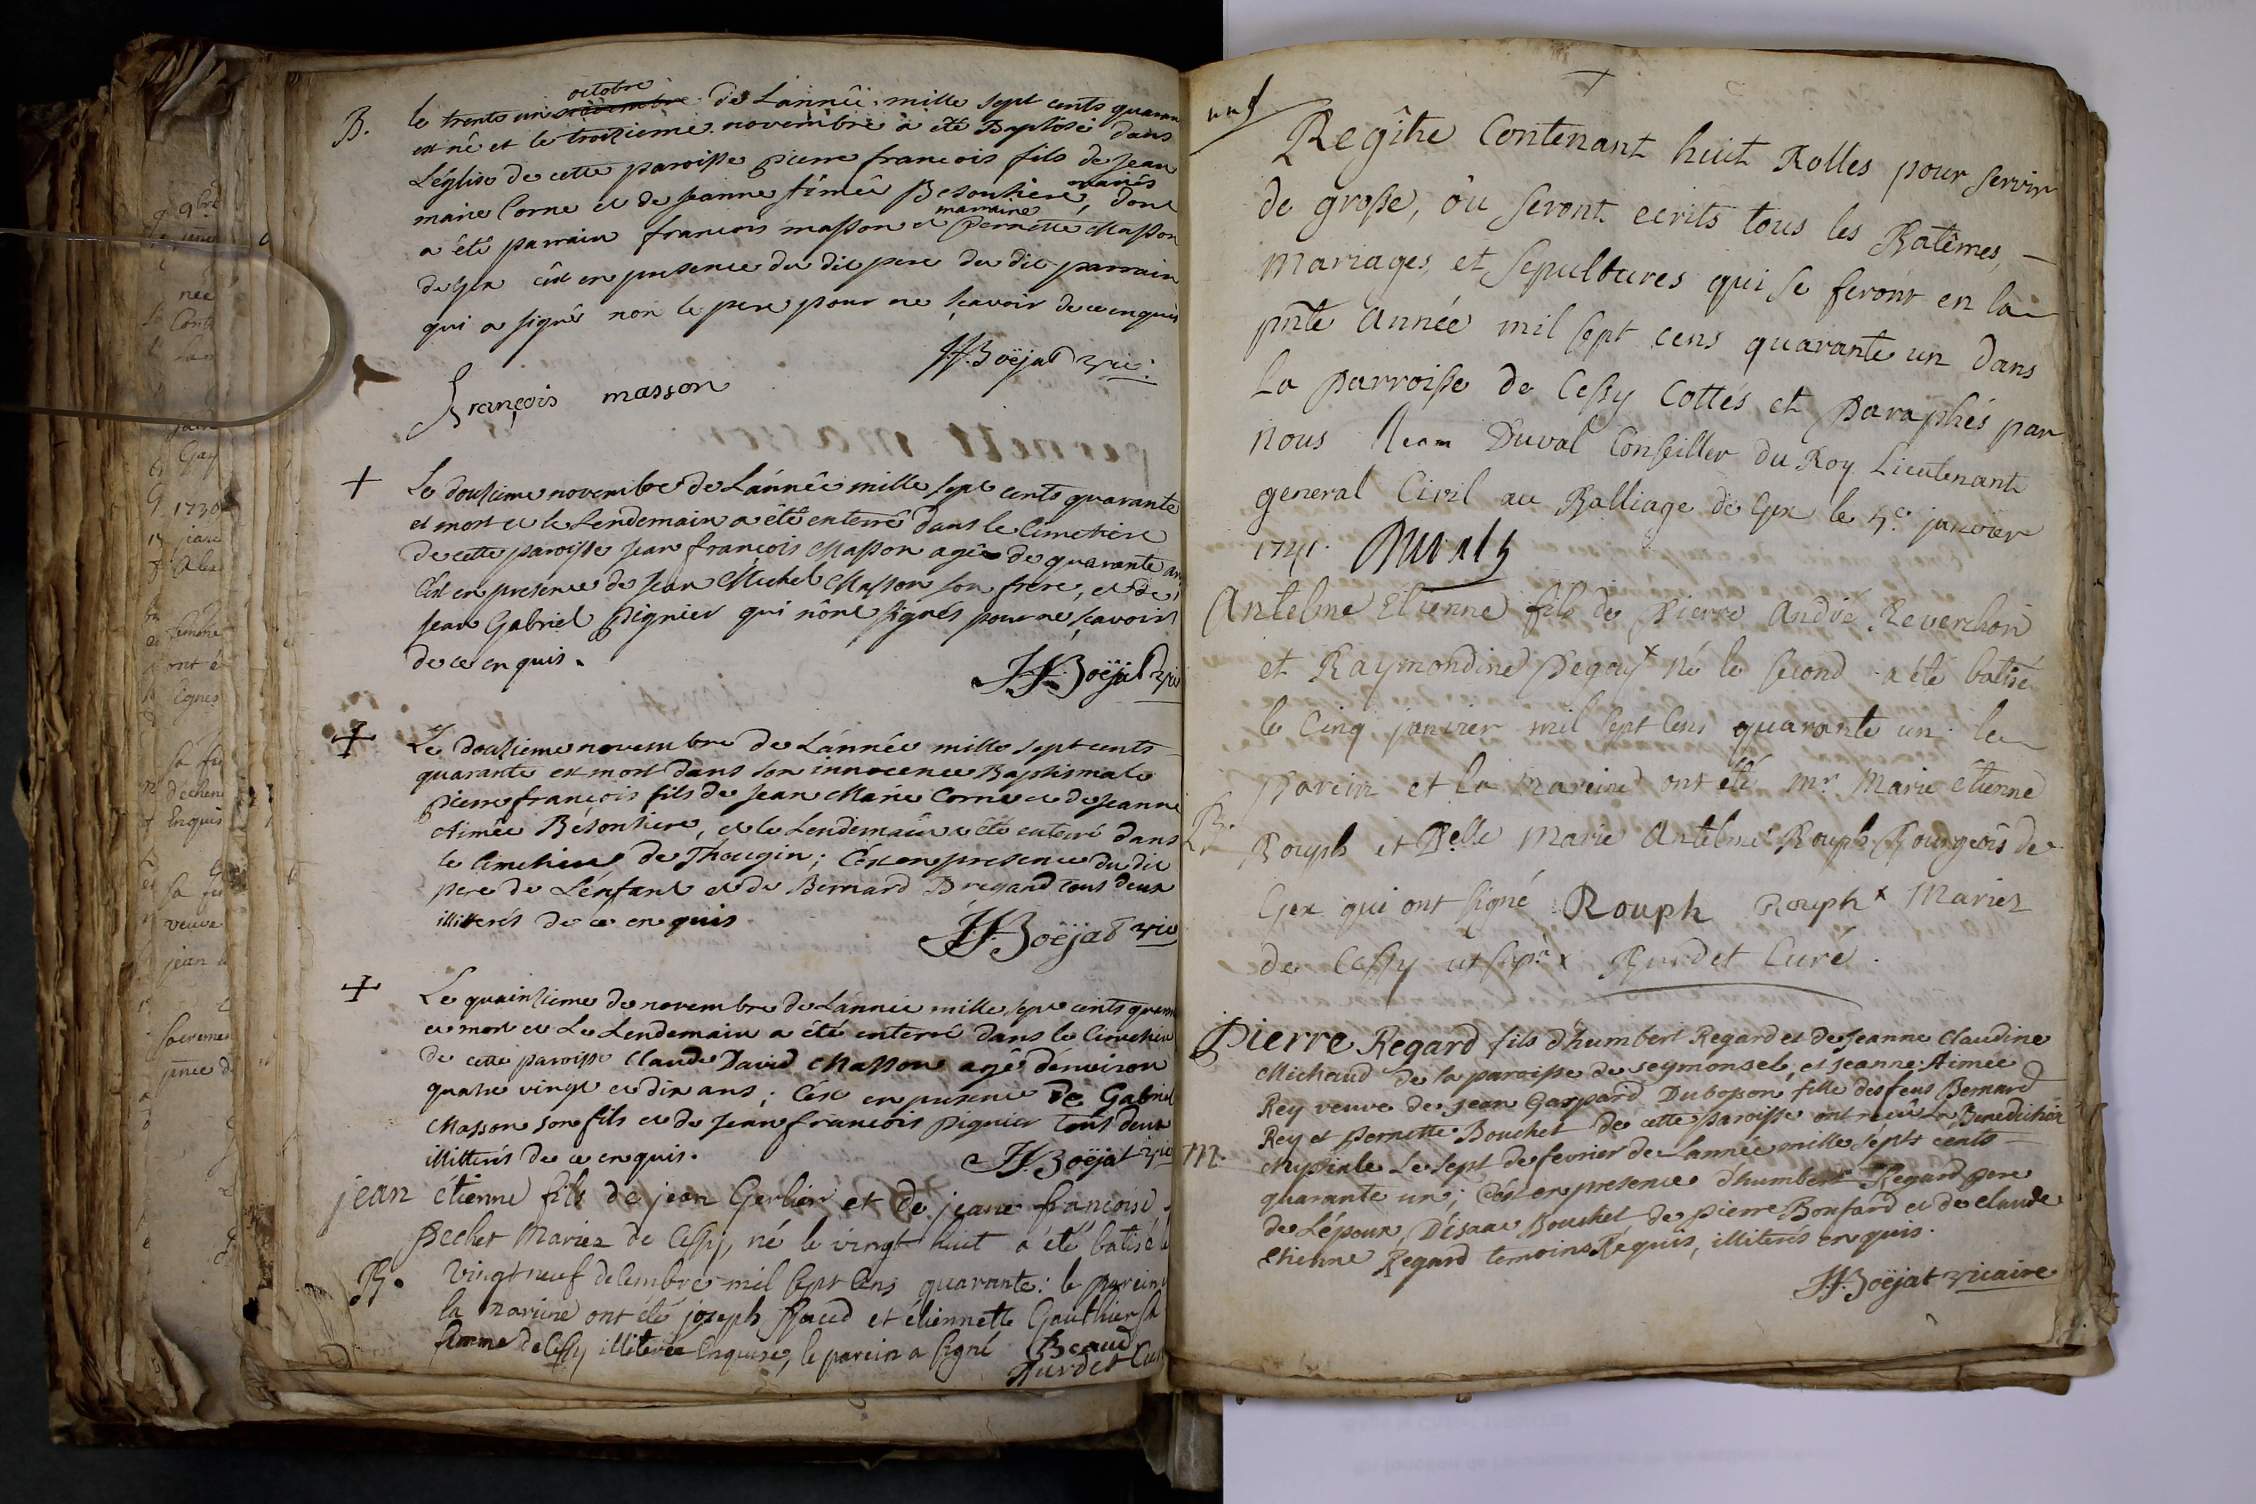 B. le trente un novembre octobre de L'année mille sept cents quaran
est né et le troisieme novembre a été Baptisé dans
L'église de cette paroisse pierre francois fils de jean
marie Corne et de jeanne Aimée Besontiere mariés, dont
a été parrain francois masson et marraine Pernette Masson
de Gex c'est en presence du dit pere du dit parrain
qui a signé non le pere pour ne sçavoir de ce enquis
JJ. Boëjat vic.
François masson
+ Le douzieme novembre de L'année mille sept cents quarante
est mort et le Lendemain a été enterré dans le Cimetiere
de cette paroisse jean françois Masson agé de quarante ans
C'est en presence de jean Michel Masson son frere, et de
jean Gabriel Pignier qui n'ont signés pour ne sçavoir
de ce enquis.
JJ. Boëjat vic
+ Le douzieme novembre de L'année mille sept cents
quarante est mort dans son innocence Baptismale
pierre françois fils de jean Marie Corne et de jeanne
Aimée Bésontiere, et le Lendemain a été enterré dans
le Cimetiere de Thougin; C'est en presence du dit
pere de L'enfant et de Bernard Bregand tous deux
illitterés de ce enquis
JJ. Boëjat vic
+ Le quainzieme de novembre de L'année mille sept cents quaran
est mort et Le Lendemain a été enterré dans le Cimetiere
de cette paroisse Claude David Masson agé d'environ
quatre vingt et dix ans; C'est en presence de Gabriel
Masson son fils et de jean francois Pignier tous deux
illitterés de ce enquis.
JJ. Boëjat vic
jean étienne fils de jean Gerlier et de jeane francoise
Pechet Mariez de Cessy, né le vingt huit a été batisé le
B. Vingt neuf decembre mil sept cens quarante: le parein
la mareine ont été joseph Reaud et étiennette Gauthier sa
femme de Cessy illiterée Enquise, le parein a signé Reaud
Burdet Curé
Regître Contenant huit Rolles pour servir
de grosse, où seront ecrits tous les Batêmes,
Mariages, et Sepultures qui se feront en la
pnte Année mil sept cens quarante un dans
La parroisse de Cessy Cottés et Paraphés par
nous Jean Duval Conseiller du Roy Lieutenant
general Civil au Balliage de Gex le 4e janvier
1741. Duval
Antelme Etienne fils de Pierre André Reverchon
et Raymondine Degouy x né le second a été batisé
le Cinq janvier mil sept cens quarante un. le
Parein et la Mareine ont été Mr Marie étienne
B. Rouph et Delle Marie Antelme Rouph Bourgeois de
Gex qui ont signé Rouph Rouph x Mariez
de Cessy ut supra x Burdet Curé.
Pierre Regard fils d'humbert Regard et de jeanne Claudine
Michaud de la paroisse de seymonsel, et jeanne Aimée
Rey veuve de jean Gaspard Duboson fille des feus Bernard
Rey et Pernette Bouchet de cette paroisse ont reçû La Benediction
M. Nuptiale Le sept de fevrier de L'année mille sépts cents
quarante un; C'est en presence d'humbert Regard pere
de L'époux, D'isaac Bouchet, de pierre Bonfard et de claude
Etienne Regard temoins Requis, illiterés enquis.
JJ. Boëjat vicaire